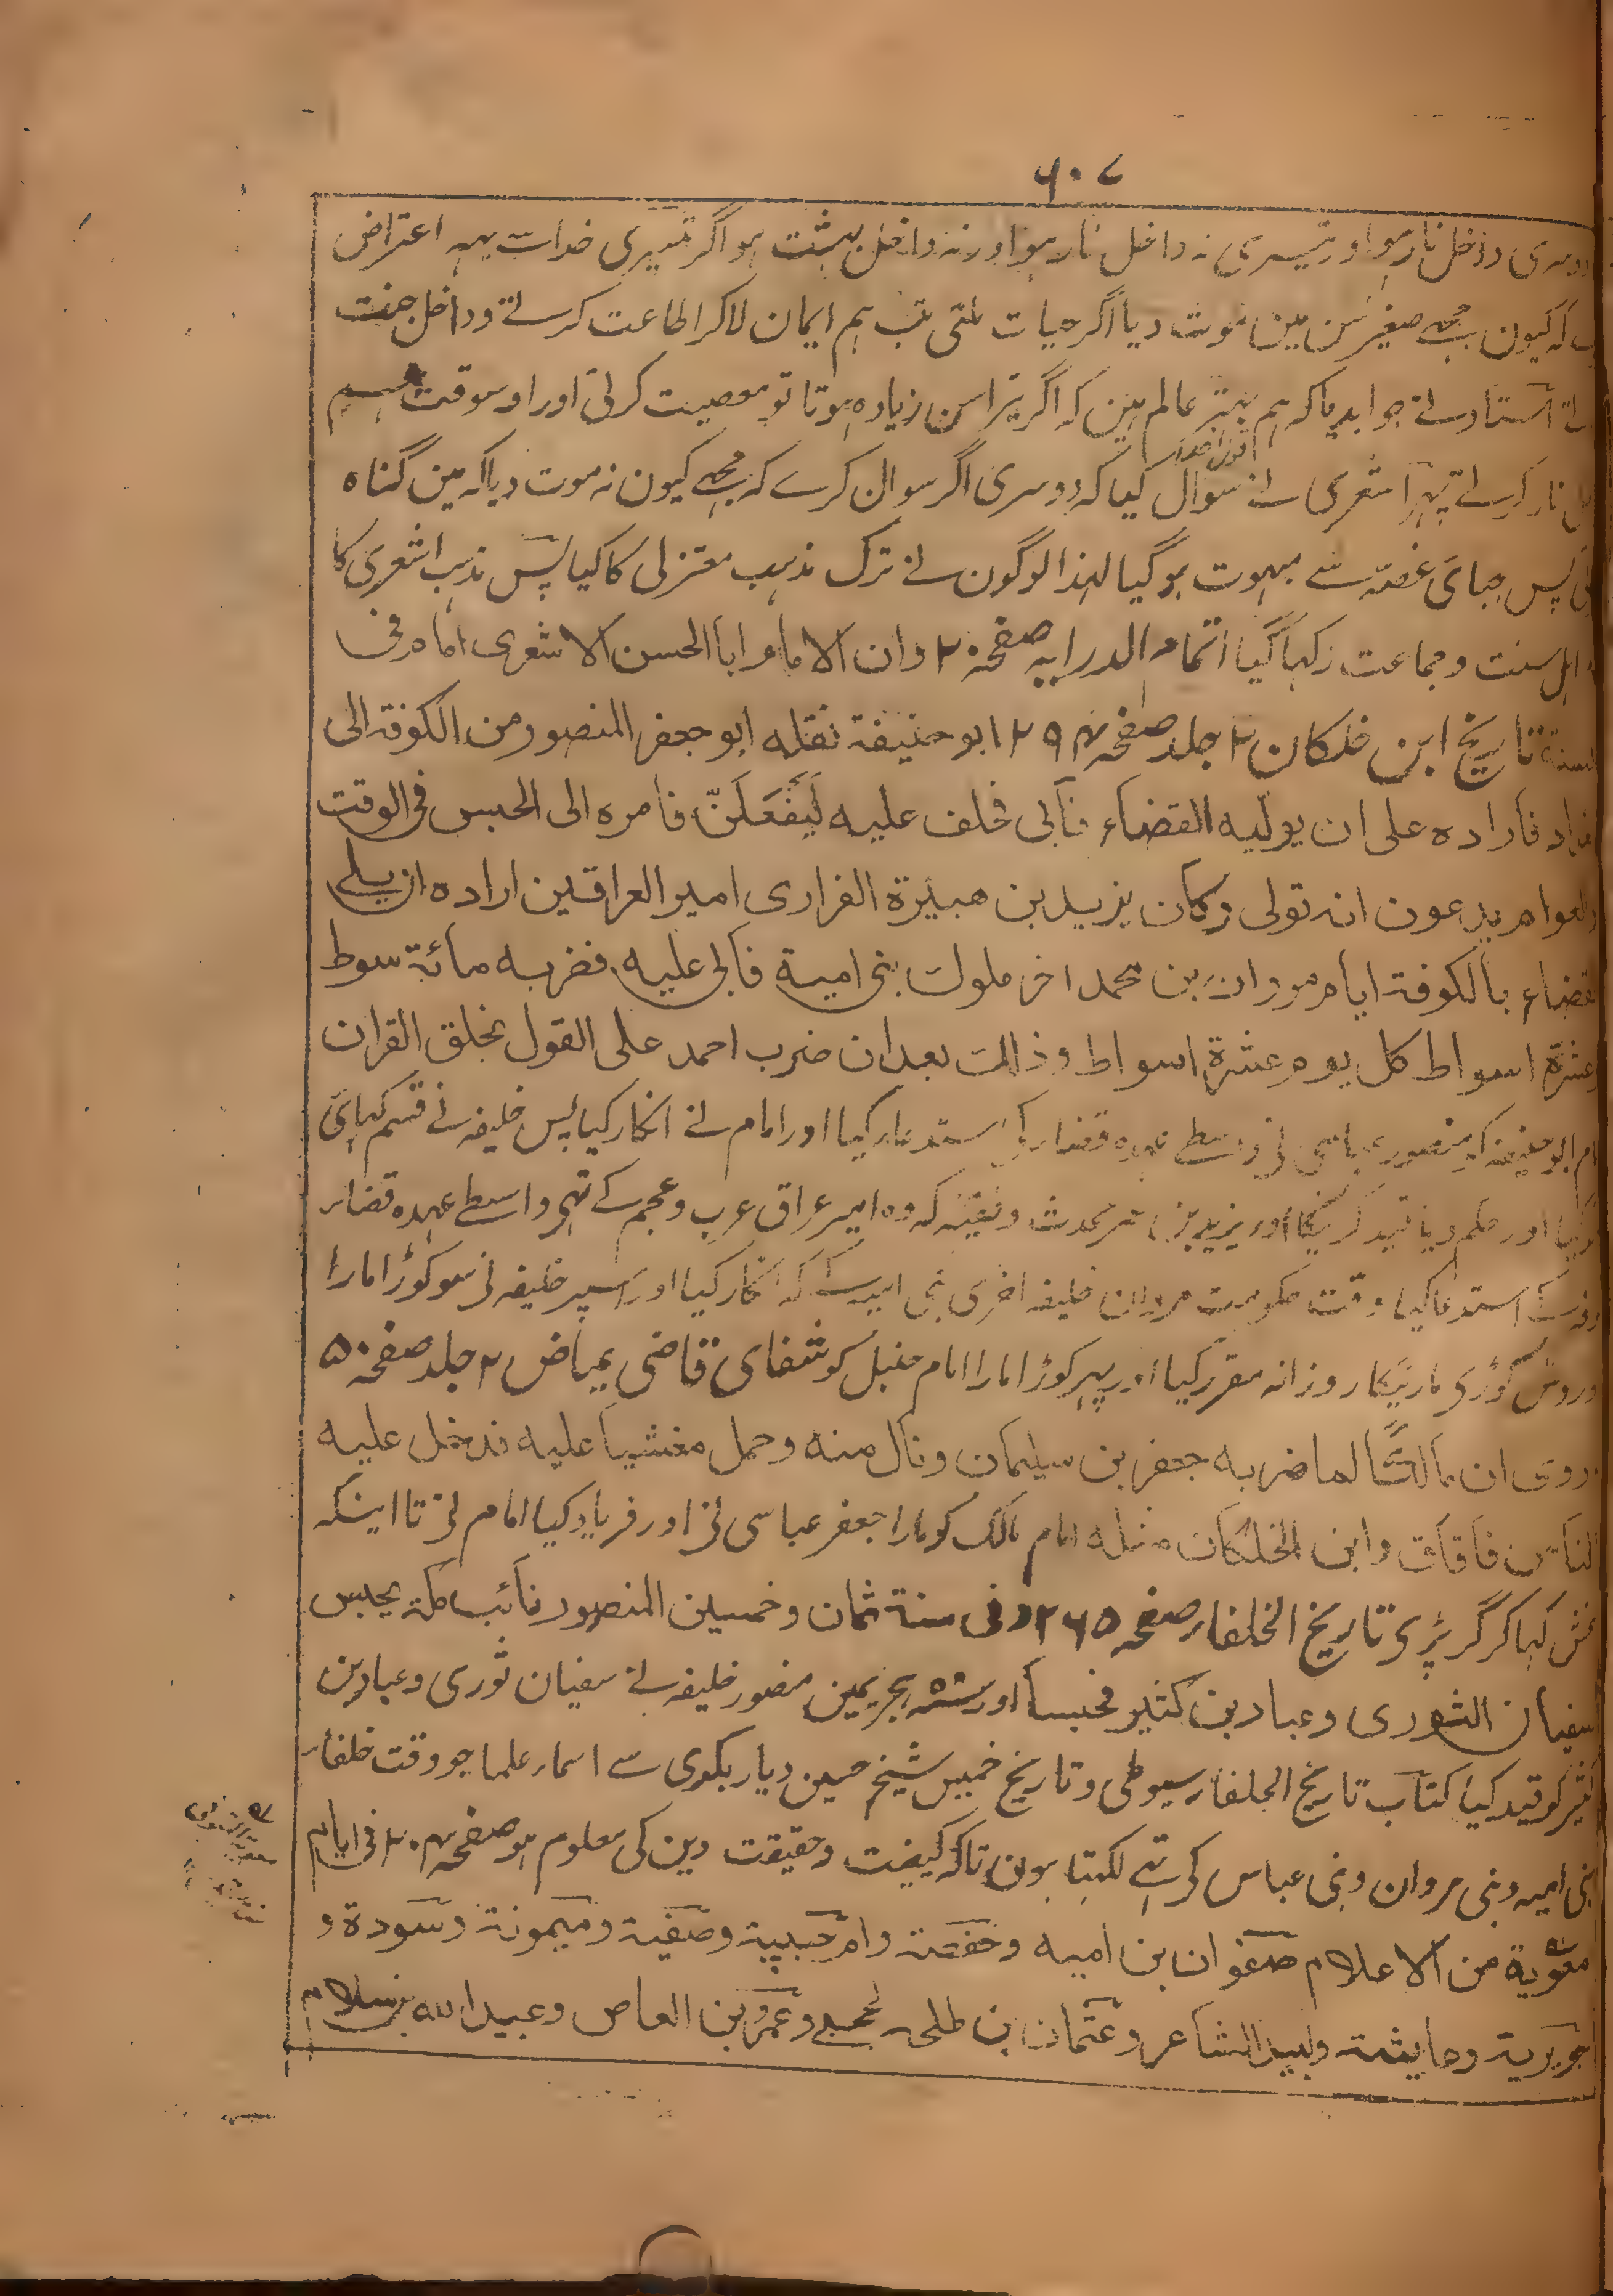 ۶۰۷
دوسری داخل نار ہوا اور تیسری نہ داخل نار ہوا اور نہ داخل بہشت ہوا اگر تیسری خدا سے یہہ اعتراض
کہ کیون مجھے صغیر سن مین موت دیا اگر حیات ملتی تب ہم ایمان لاکر اطاعت کرتے و داخل جنت
استاد نے جوابدیا کہ ہم بہتر عالم ہین کہ اگر تیرا سن زیادہ ہوتا تو معصیت کرتی اور اوسوقت ہم
نار کرتے پہر اشعری نے سوال کیا کہ دوسری اگر سوال کرے کہ مجھے کیون نہ موت دیا کہ مین گناہ
پس جبائی غصہ سے مبہوت ہوگیا لہذا لوگون نے ترک مذہب معتزلی کا کیا پس مذہب اشعری کا
اہل سنت وجماعت رکہا گیا اتمام الدرایہ صفحہ ۲۰ وان الامام ابا الحسن الاشعری امام فی
السنۃ تاریخ ابن خلکان ۲ جلد صفحہ ۲۹۴ ابو حنیفۃ نقلہ ابو جعفر المنصور من الکوفۃ الی
فارادہ علی ان یولیہ القضاء فابی فحلف علیہ لَیَفعَلَنّ فامرہ الی الحبس فی الوقت
والعوام یدعون انہ تولی وکان یزید بن ھبیرۃ الفزاری امیر العراقین ارادہ ان یلی
القضاء بالکوفۃ ایام مروان بن محمد اخر ملوک بنی امیۃ فابی علیہ فضربہ مائۃ سوط
وعشرۃ اسواط کل یوم عشرۃ اسواط وذالک بعد ان ضرب احمد علی القول بخلق القران
امام ابو حنیفہ کو منصور عباسی نے واسطے عہدہ قضا کی استدعا کیا اور امام نے انکار کیا پس خلیفہ نے قسم کہائی
اور حکم دیا قید کرنیکا اور یزید بن محدث وفقیہ کہ وہ امیر عراق عرب وعجم کے تہے واسطے عہدہ قضا
کے استدعا کیا وقت حکومت مروان خلیفہ اخری بنی امیہ کے کہ انکار کیا اور اسپر خلیفہ نے سو کوڑا مارا
ودس کوڑی مارنیکا روزانہ مقرر کیا اور پہر کوڑا مارا امام حنبل کو شفای قاضی عیاض ۲ جلد صفحہ ۵۰
روی ان مالکًا لما ضربہ جعفر بن سلیمان ونال منہ وحمل مغشیا علیہ فدخل علیہ
الناس فافاق وابن الخلکان مثلہ امام مالک کو مارا جعفر عباسی نے اور فریاد کیا امام نے تا اینکہ
غش کہا کر گر پڑی تاریخ الخلفا صفحہ ۲۶۵ وفی سنۃ ثمان وخمسین المنصور نائب مکۃ بحبس
سفیان الثوری وعباد بن کثیر فحبسا اور ہجریمین منصور خلیفہ نے سفیان ثوری وعباد بن
کثیر کو قید کیا کتاب تاریخ الخلفا سیوطی وتاریخ خمیس شیخ حسین دیاربکری سے اسمار علما جو وقت خلفار
بنی امیہ وبنی مروان وبنی عباس کی تہے لکہتا ہون تاکہ کیفیت وحقیقت دین کی معلوم ہو صفحہ ۲۰۴ فی ایام
معویۃ من الاعلام صفوان بن امیہ وحفصۃ وام حبیبۃ وصفیۃ ومیمونۃ وسودۃ و
جویریۃ وعایشۃ ولبید الشاعر وعثمان بن طلحہ وعمرو بن العاص وعبد اللہ بن سلام